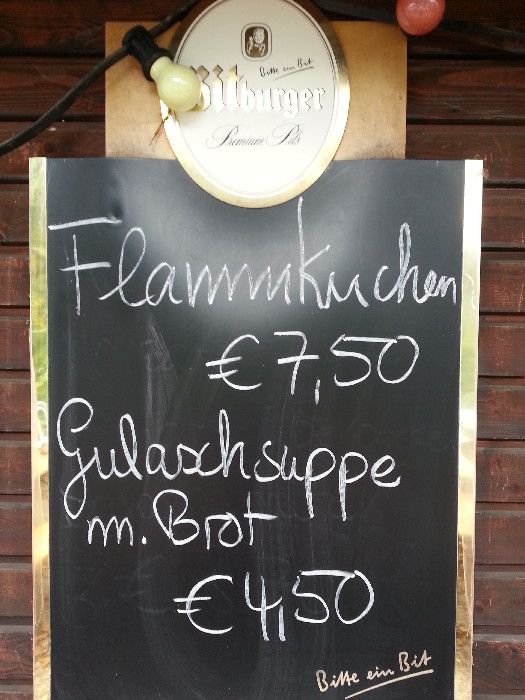 Bitte ein Bit
Bitburger
Premium Pils
Flammkuchen
€7,50
Gulaschsuppe
m. Brot
€4,50
Bitte ein Bit